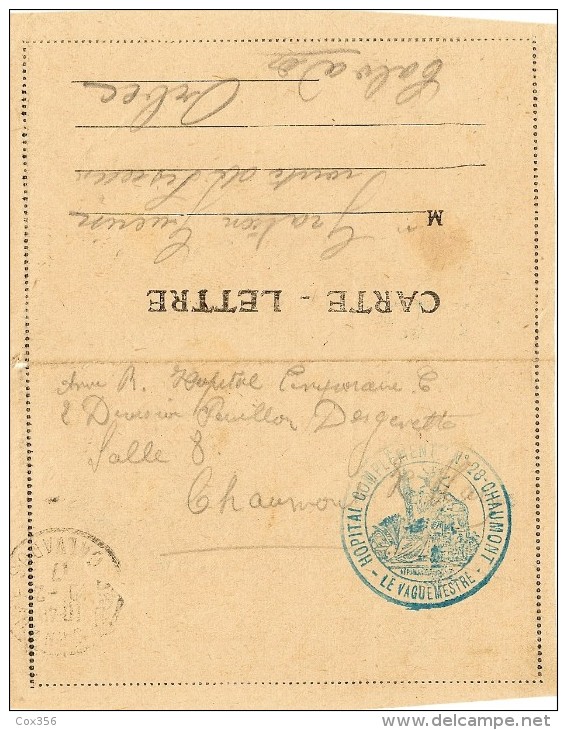 CARTE - LETTRE
M Gratien Guerin
route de Lisieux
Orbec
Calvados
R. Hopital Temporaire C
2 Division Pavillon Desgenette
Salle 8
Chaumont
HOPITAL COMPLEMENT. N°28 - CHAUMONT
- LE VAGUEMESTRE -
CALVA
17
Cox356
delcampe.net